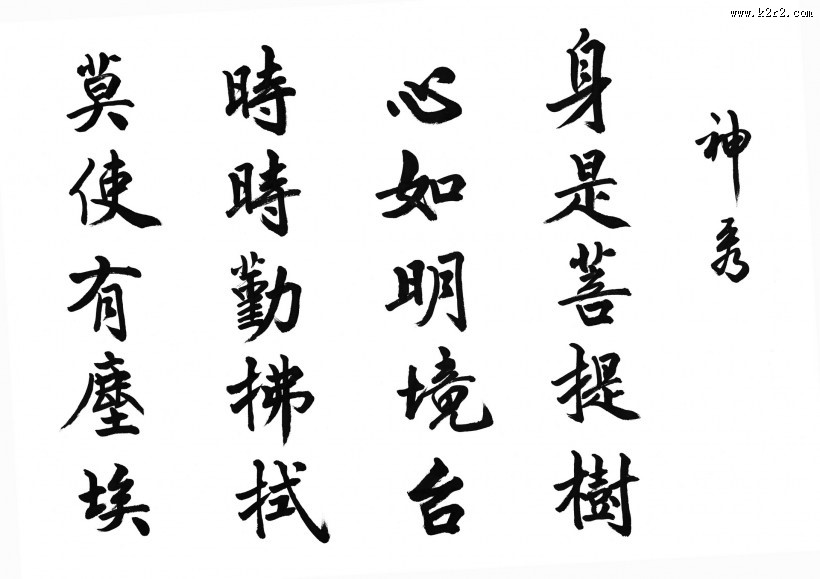 www.k2r2.com
神秀
身是菩提樹
心如明境台
時時勤拂拭
莫使有塵埃